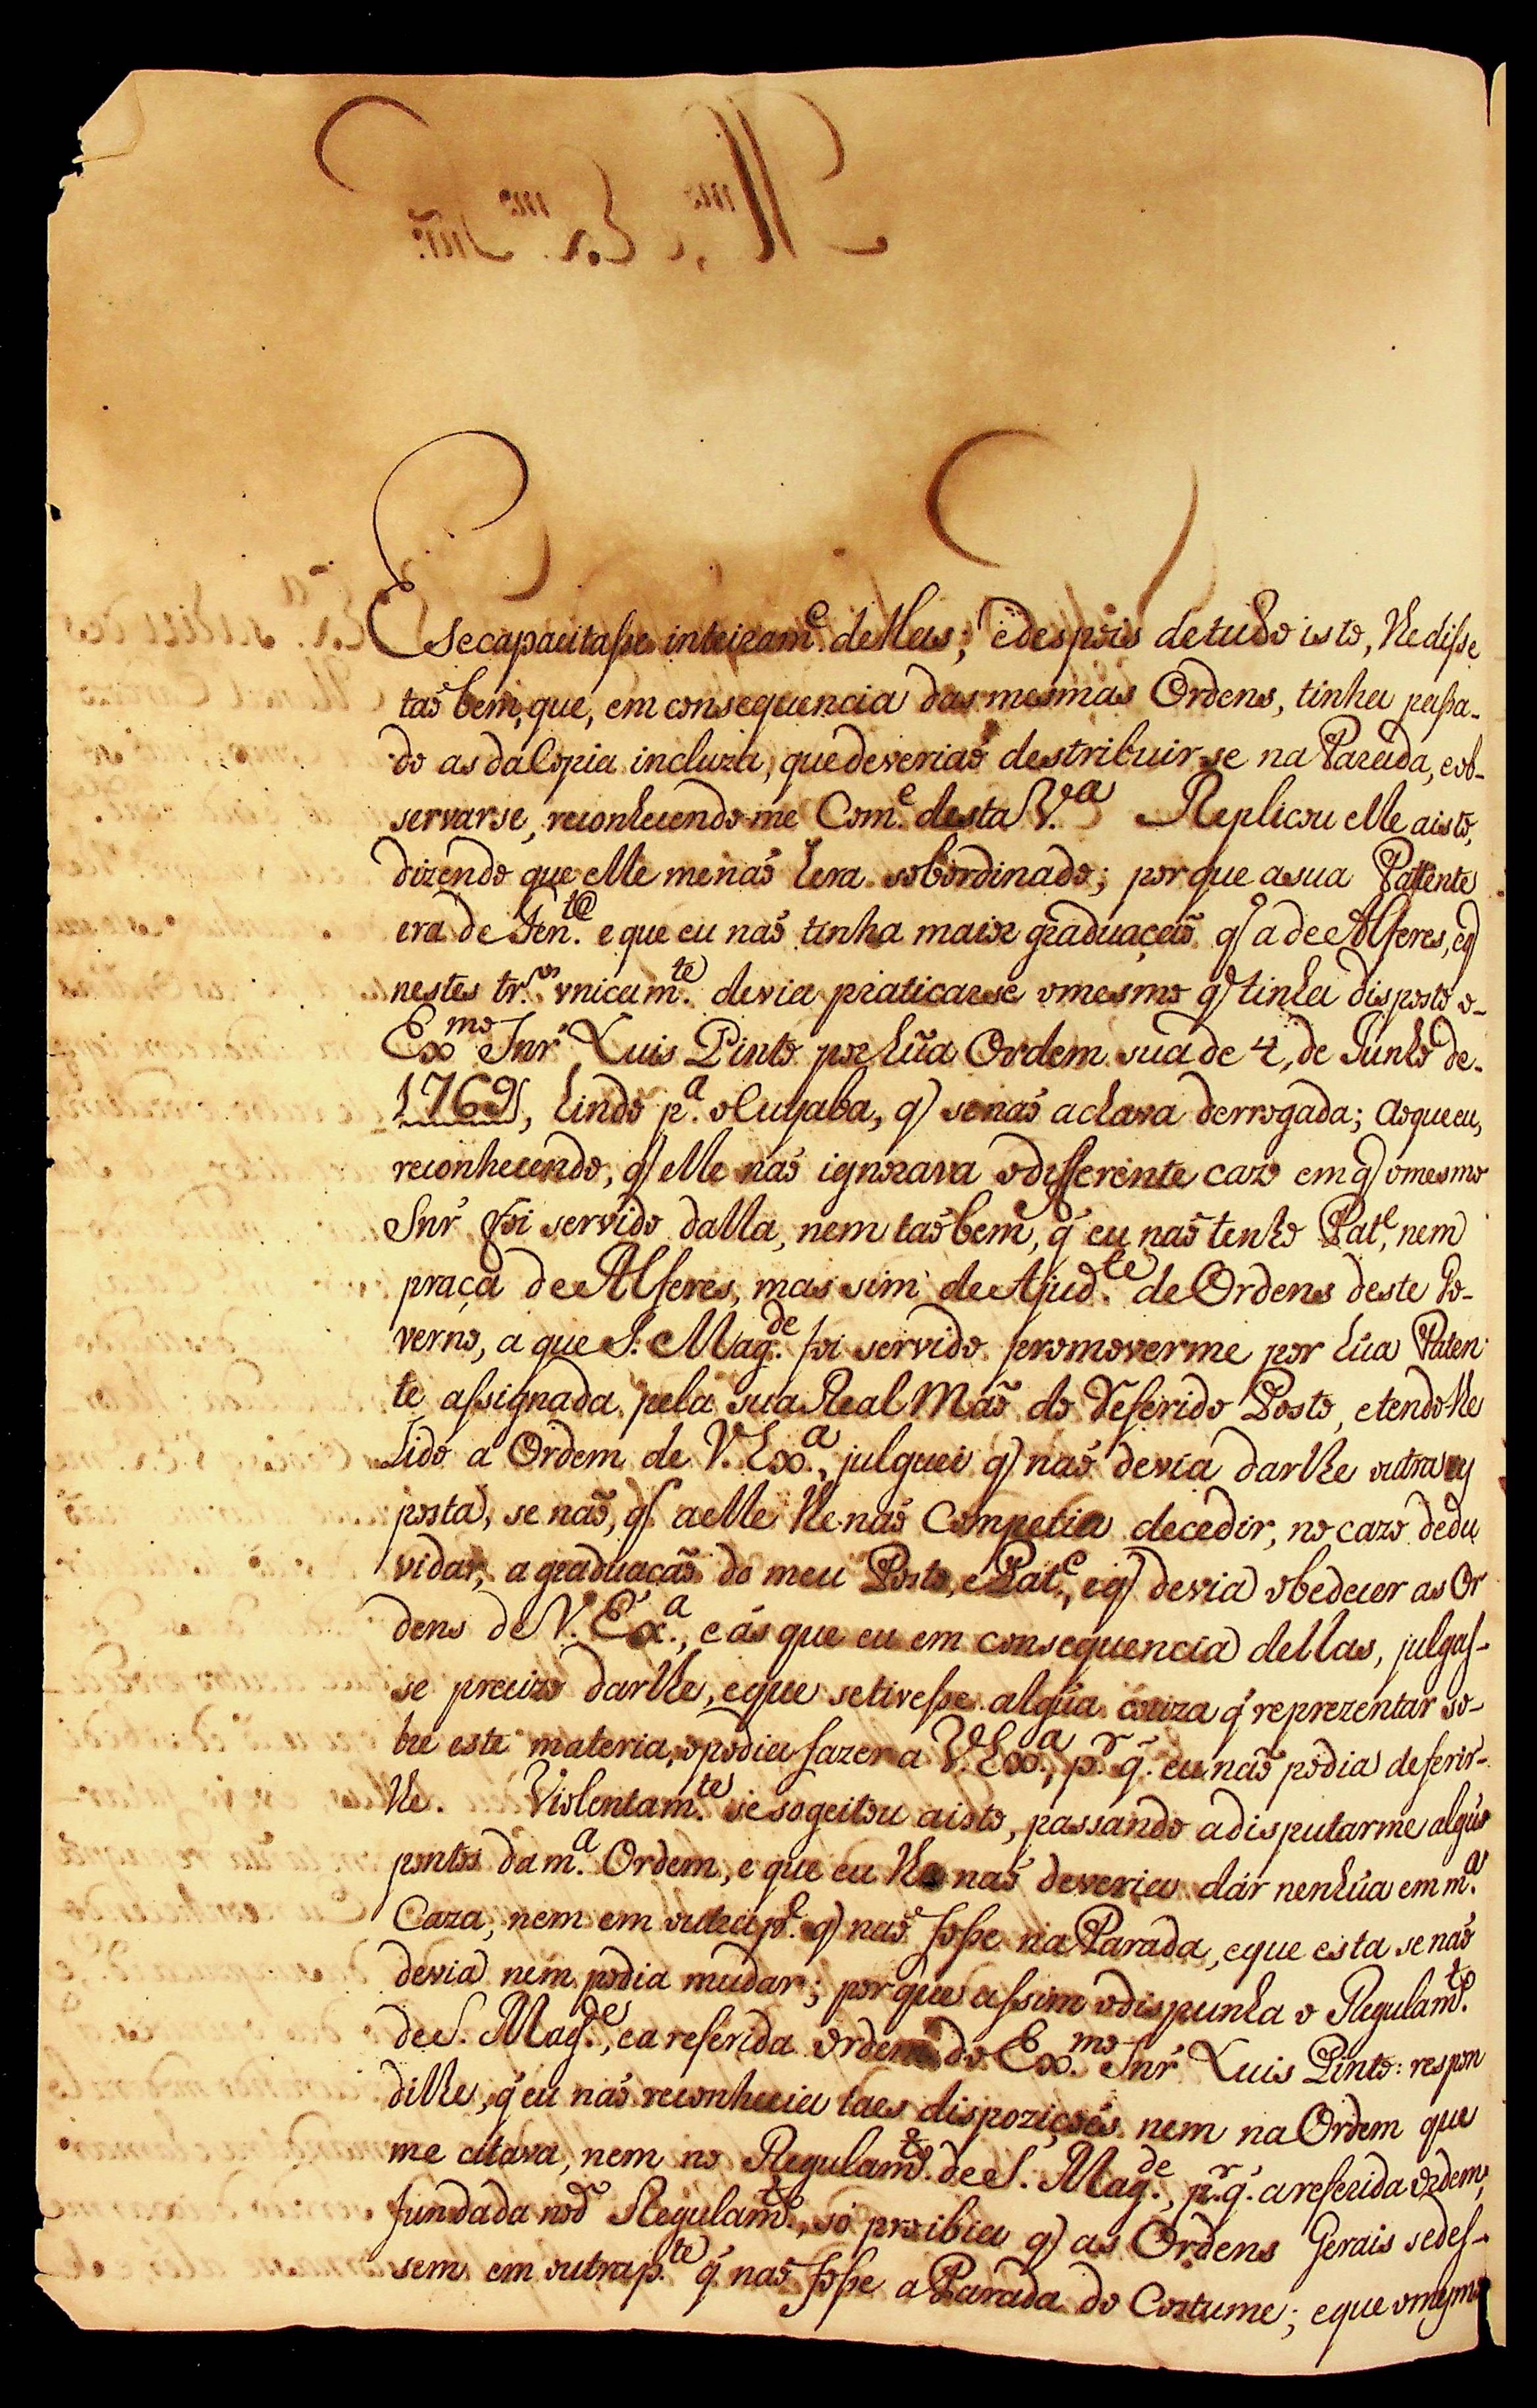 Se capacitaſse inteiram.e dellas; e despois de tudo isto, lhe diſse
taõ bem, que, em consequencia das mesmas Ordens, tinha paſsa-
do as da Copia incluza, que deveriaõ destribuir se na Parada, e ob-
servarse, reconhecendo me Com.e desta V.a Replicou elle a isto,
dizendo que elle me naõ hera sobordinado; porque a sua Patente
era de Ten.te e que eu naõ tinha maior graduaçaõ q̃ a de Alferes, e q̃
nestes tr.os vnicam.te devia praticarse o mesmo q̃ tinha disposto o
Ex.mo Snr' Luis Pinto por hũa Ordem sua de 4, de Junho de
1769, hindo p.a o Cuyaba, q̃ se naõ achava derrogada; Ao que eu,
reconhecendo, q̃ elle naõ ignorava o differente cazo em q̃ o mesmo
Snr' foi servido dalla, nem taõ bem, q̃ eu naõ tenho Pat.e, nem
praça de Alferes, mas sim de Ajud.te de Ordens deste Go-
verno, a que S. Mag.de foi servido promoverme por hũa Paten-
te aſsignada pela sua Real Maõ do Referido Posto, e tendo lhe
Lido a Ordem de V. Ex.a, julguei q̃ naõ devia darlhe outra res
posta, se naõ, q̃ a elle lhe naõ Competia decedir, no cazo de du
vidar, a graduaçaõ do meu Posto, e Pat.e, e q̃ devia obedecer as Or
dens de V. Ex.a, e ás que eu em consequencia dellas, julgaſ-
se precizo darlhe, e que se tiveſse algũa couza q̃ reprezentar so-
bre este materia, o podia fazer a V. Ex.a, p.r q̃ eu naõ podia deferir-
lhe. Violentam.te se sogeitou a isto, passando a disputarme algũs
pontos da m.a Ordem, e que eu lhe naõ deveria dár nenhũa em m.a
Caza, nem em outra p.e q̃ naõ foſse na Parada, e que esta se naõ
devia nem podia mudar; porque aſsim o dispunha o Regulam.to
de S. Mag.de, e a referida Ordem do Ex.mo Snr' Luis Pinto: respon
dilhe, q̃ eu naõ reconhecia taes dispoziçoẽs nem na Ordem que
me citava, nem no Regulam.to de S. Mag.de, p.r q̃ a referida Ordem,
fundada no d.o Regulam.to, só proibia q̃ as Ordens Gerais se deſ-
sem em outra p.te q̃ naõ foſse a Parada do Costume; e que o mesmo